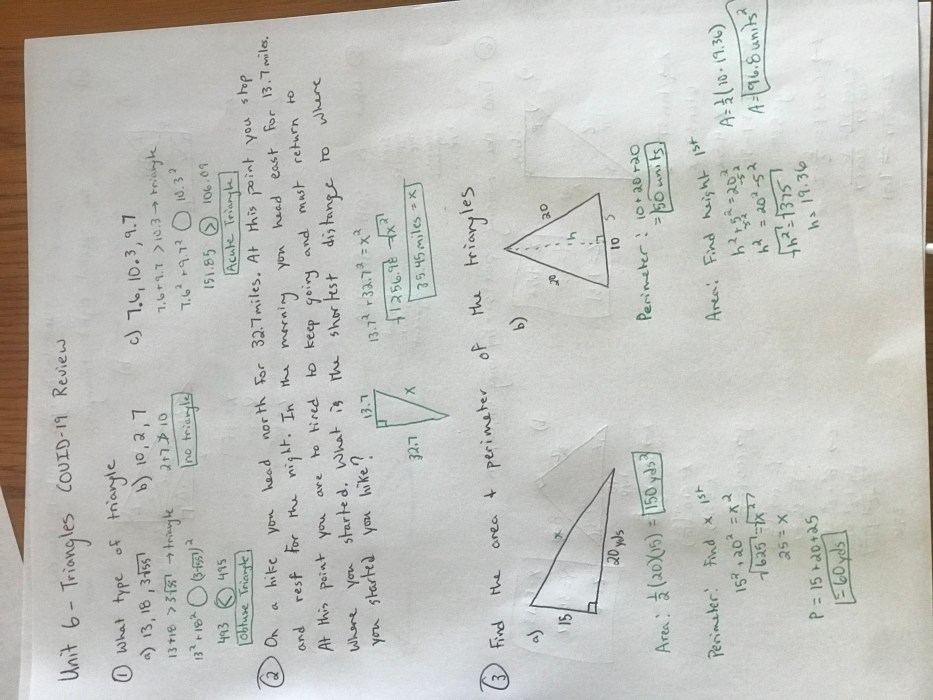 Unit 6 - Triangles COVID-19 Review
① What type of triangle
a) 13, 18, 3√55
13+18 > 3√55 → triangle
13² + 18² ◯ (3√55)²
493 < 495
Obtuse Triangle
b) 10, 2, 7
2+7 ≯ 10
no triangle
c) 7.6, 10.3, 9.7
7.6+9.7 > 10.3 → triangle
7.6² + 9.7² ◯ 10.3²
151.85 > 106.09
Acute Triangle
② On a hike you head north for 32.7 miles. At this point you stop
and rest for the night. In the morning you head east for 13.7 miles.
At this point you are to tired to keep going and must return to
where you started. What is the shortest distance to where
you started you hike?
13.7
32.7
x
13.7² + 32.7² = x²
√1256.98 = √x²
35.45 miles = x
③ Find the area + perimeter of the triangles
a)
15
x
20 yds
Area: ½(20)(15) = 150 yds²
Perimeter: Find x 1st
15² + 20² = x²
√625 = √x²
25 = x
P = 15 + 20 + 25
= 60 yds
b)
20
20
h
10
5
Perimeter: 10 + 20 + 20
= 50 units
Area: Find height 1st
h² + 5² = 20²
-5² -5²
h² = 20² - 5²
√h² = √375
h = 19.36
A = ½(10 · 19.36)
A = 96.8 units²